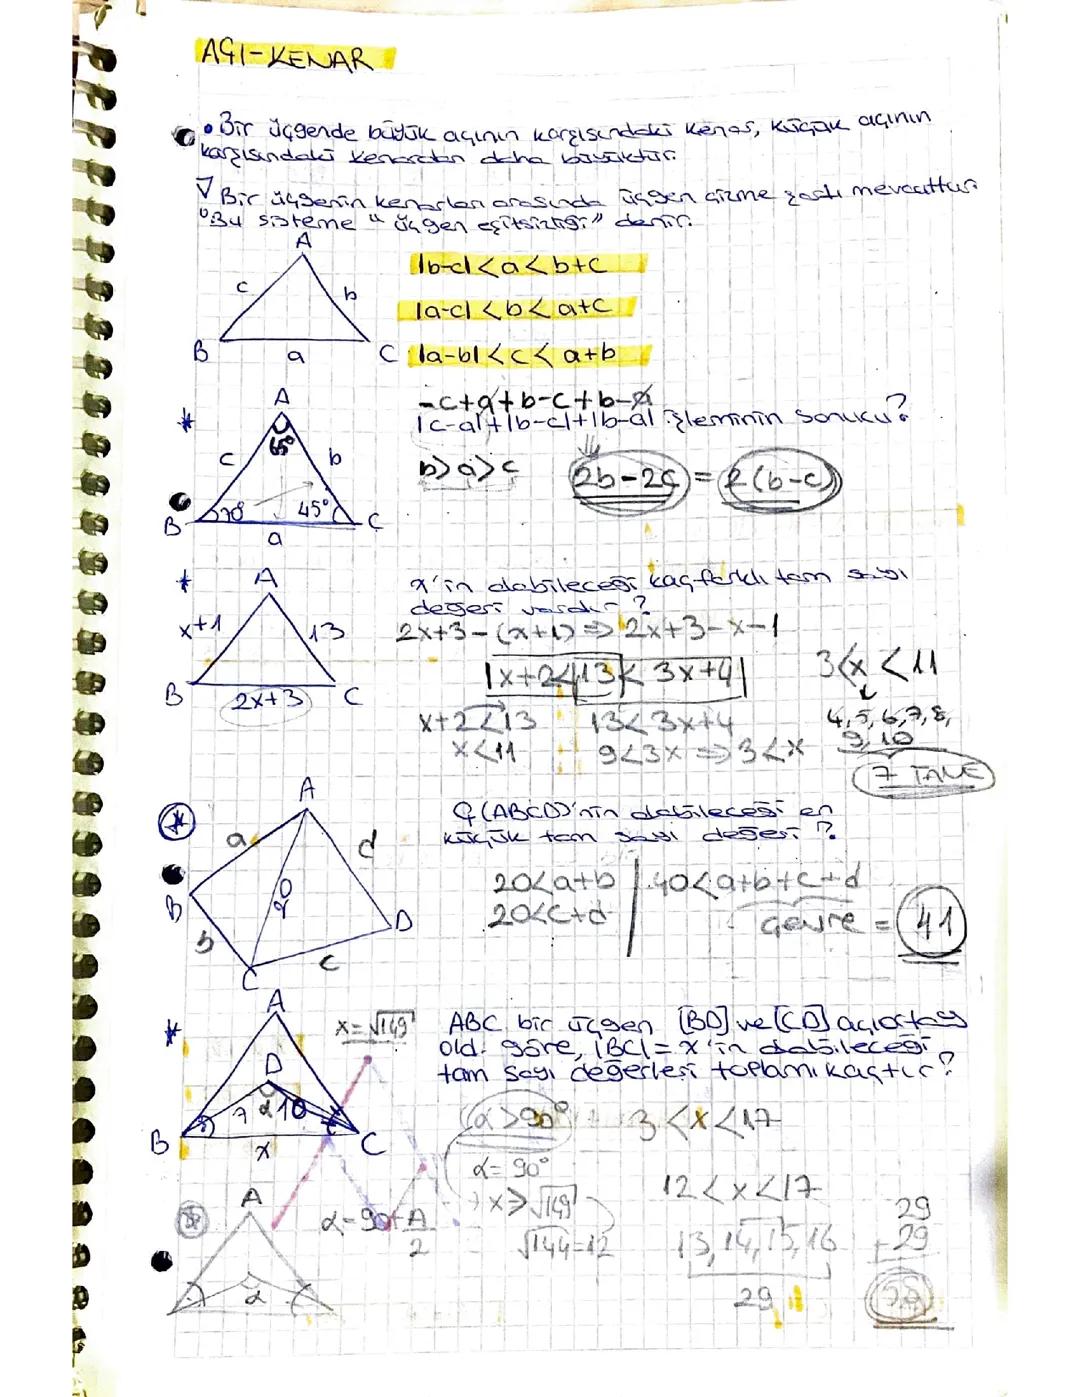 AÇI-KENAR
• Bir üçgende büyük açının karşısındaki kenar, küçük açının
karşısındaki kenardan daha büyüktür.
Bir üçgenin kenarları arasında üçgen çizme şartı mevcuttur.
Bu sisteme "üçgen eşitsizliği" denir.
A
c
b
B
a
C
|b-c|<a<b+c
|a-c|<b<a+c
|a-b|<c<a+b
-c+a+b-c+b-a
|c-a|+|b-c|+|b-a| işleminin sonucu?
A
65°
c
b
70°
45°
B
C
a
b>a>c
2b-2c = 2(b-c)
x'in alabileceği kaç farklı tam sayı
değeri vardır?
A
x+1
13
B
2x+3
C
2x+3-(x+1) ⇒ 2x+3-x-1
|x+2<13<3x+4|
3<x<11
x+2<13
13<3x+4
4,5,6,7,8,
x<11
9<3x ⇒ 3<x
9,10
7 TANE
Ç(ABCD)'nin alabileceği en
küçük tam sayı değeri?
A
a
d
20
B
D
b
c
C
20<a+b
40<a+b+c+d
20<c+d
Çevre = 41
ABC bir üçgen [BD] ve [CD] açıortay
old. göre, |BC|=x'in alabileceği
tam sayı değerleri toplamı kaçtır?
A
x=√149
D
7
α
10
B
x
C
α>90°
3<x<17
α=90°
x>√149
12<x<17
√144=12
13,14,15,16
29
29
+29
58
A
α=90+A/2
α